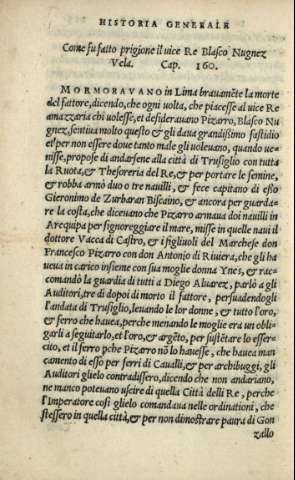 HISTORIA GENERALE
Come fu fatto prigione il uice Re Blasco Nugnez
Vela. Cap. 160.
MORMORAVANO in Lima brauamẽte la morte
del fattore, dicendo, che ogni uolta, che piacesse al uice Re
amazzaria chi uolesse, et desiderauano Pizarro, Blasco Nu
gnez, sentiua molto questo & gli daua grandissimo fastidio
et per non essere doue tanto male gli uoleuano, quando ue-
nisse, propose di andarsene alla città di Trusiglio con tutta
la Ruota, & Thesoreria del Re, & per portare le femine,
& robba armò duo o tre nauilli, & fece capitano di essi
Gieronimo de Zurbaran Biscaino, & ancora per guarda-
re la costa, che diceuano che Pizarro armaua doi nauilli in
Arequipa per signoreggiare il mare, misse in quelle naui il
dottore Vacca di Castro, & i figliuoli del Marchese don
Francesco Pizarro con don Antonio di Riuiera, che gli ha
ueua in carico insieme con sua moglie donna Ynes, & rac-
comandò la guardia di tutti a Diego Aluarez, parlò a gli
Auditori, tre dì dopoi di morto il fattore, persuadendogli
l'andata di Trusiglio, leuando le lor donne, & tutto l'oro,
& ferro che hauea, perche menando le moglie era un obli-
garli a seguitarlo, et l'oro, & argẽto, per sustẽtare lo esser-
cito, et il ferro pche Pizarro nõ lo hauesse, che hauea man
camento di esso per ferri di Caualli, & per archibuggi, gli
Auditori glielo contradissero, dicendo che non andariano,
ne manco poteuano uscire di quella Città delli Re, perche
l'Imperatore così glielo comandaua nelle ordinationi, che
stessero in quella città, & per non dimostrare paura di Gon
zallo